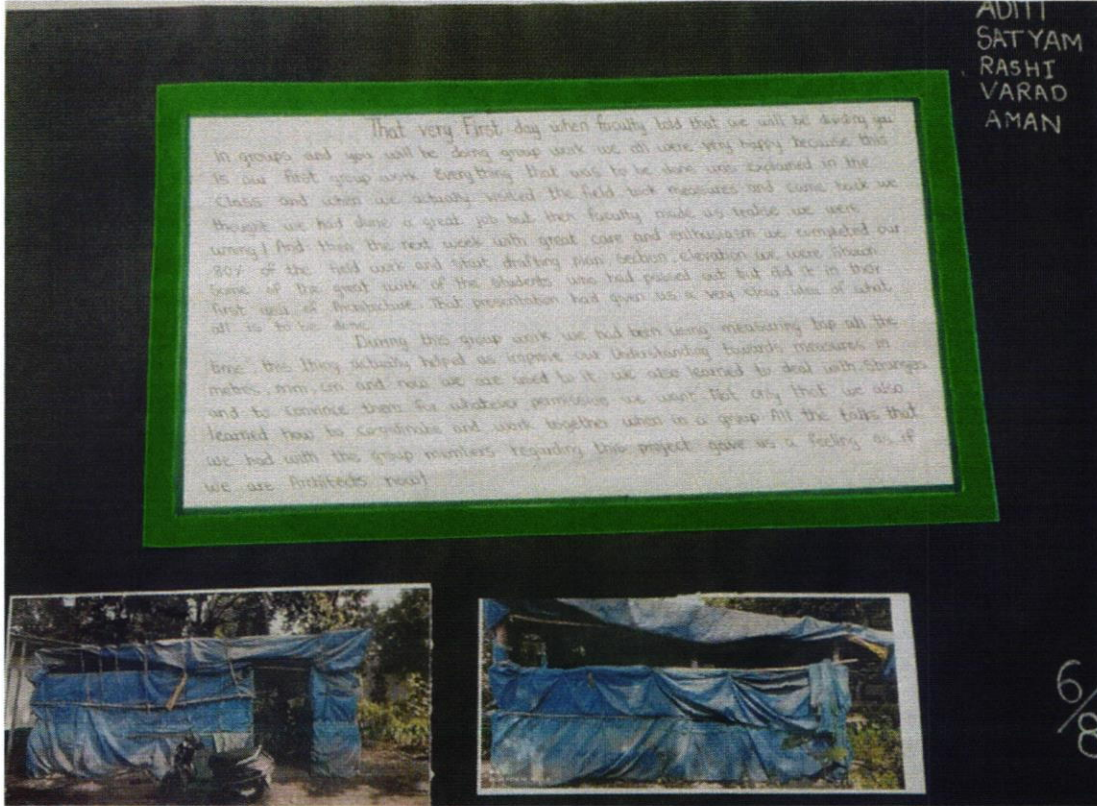 ADITI
SATYAM
RASHI
VARAD
AMAN
That very First day when faculty told that we will be dividing you
in groups and you will be doing group work we all were very happy because this
is our first group work. Everything that was to be done was explained in the
class and when we actually visited the field took measures and came back we
thought we had done a great job but then faculty made us realise we were
wrong! And then the next week with great care and enthusiasm we completed our
80% of the field work and start drafting plan section, elevation we were shown
some of the great work of the students who had passed out but did it in their
first year of Architecture. That presentation had given us a very clear idea of what
all is to be done.
During this group work we had been using measuring tap all the
time this thing actually helped us improve our Understanding towards measures in
metres, mm, cm and now we are used to it. we also learned to deal with Strangers
and to convince them for whatever permission we want. Not only that we also
learned how to co-ordinate and work together when in a group All the talks that
we had with the group members regarding this project gave us a feeling as if
we are Architects now!
6/8